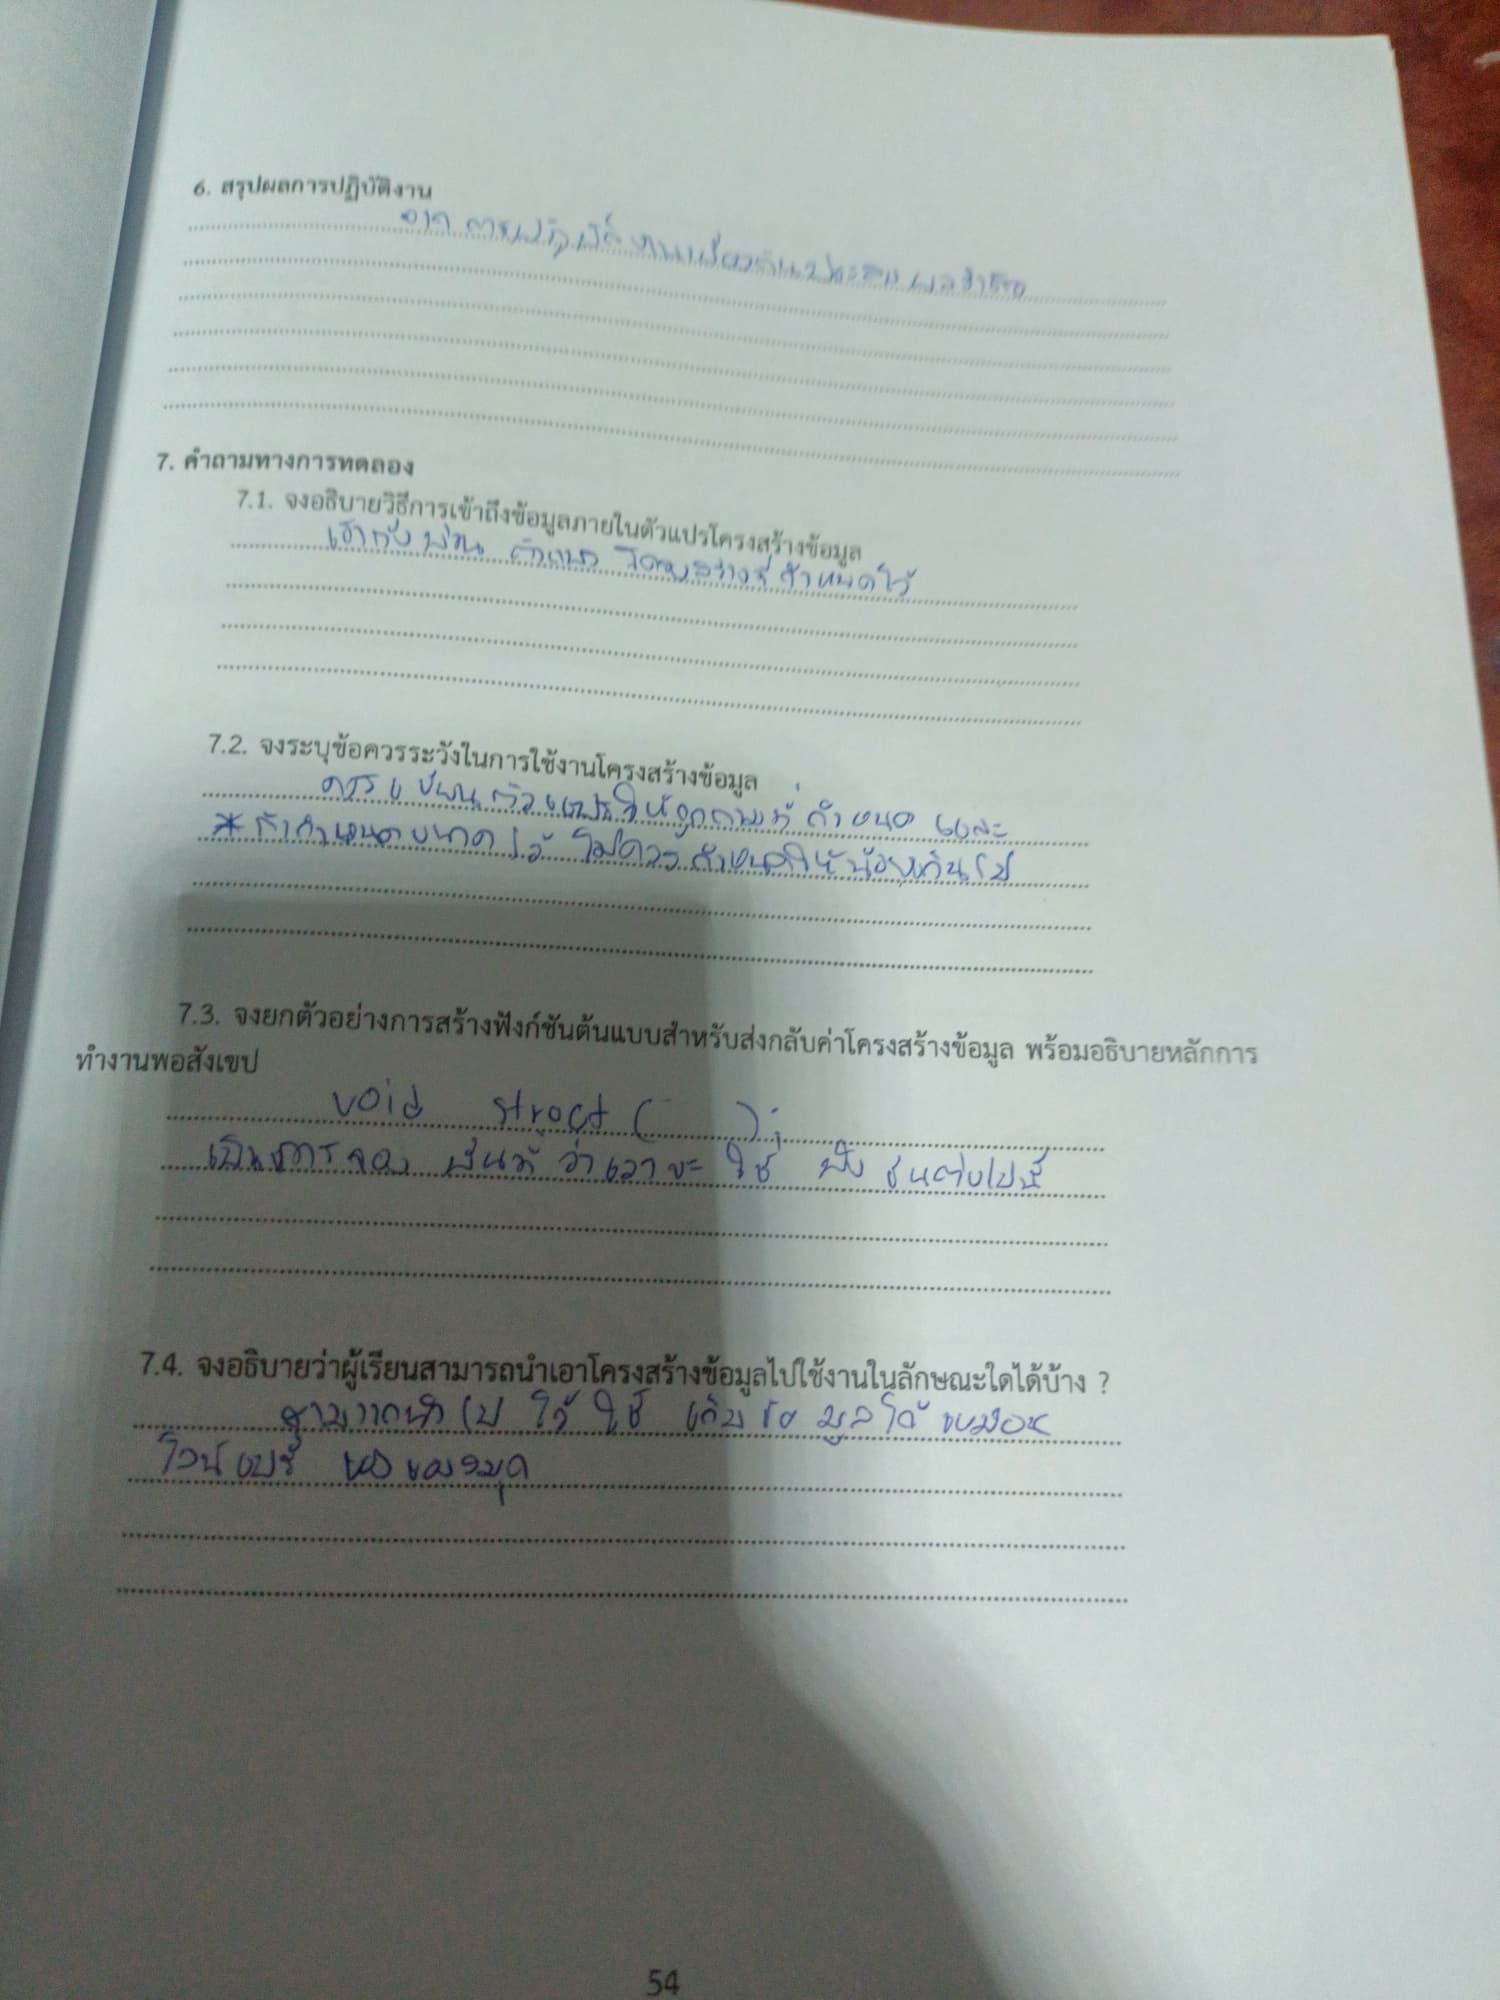 6. สรุปผลการปฏิบัติงาน
จาก การปฏิบัติงาน ผลสำเร็จ
7. คำถามทางการทดลอง
7.1. จงอธิบายวิธีการเข้าถึงข้อมูลภายในตัวแปรโครงสร้างข้อมูล
เข้าถึง ผ่าน ที่กำหนดไว้
7.2. จงระบุข้อควรระวังในการใช้งานโครงสร้างข้อมูล
ควร ตัวแปรให้ ที่ กำหนด และ
* ถ้ากำหนดขนาดไว้ ไม่ควรกำหนดให้น้อยเกินไป
7.3. จงยกตัวอย่างการสร้างฟังก์ชันต้นแบบสำหรับส่งกลับค่าโครงสร้างข้อมูล พร้อมอธิบายหลักการ
ทำงานพอสังเขป
void struct ( );
เป็นการจอง พื้นที่ ว่าเราจะ ใช้ ฟังชันต่อไปนี้
7.4. จงอธิบายว่าผู้เรียนสามารถนำเอาโครงสร้างข้อมูลไปใช้งานในลักษณะใดได้บ้าง ?
สามารถนำไป ใช้ เก็บข้อมูลได้ เหมือน
54